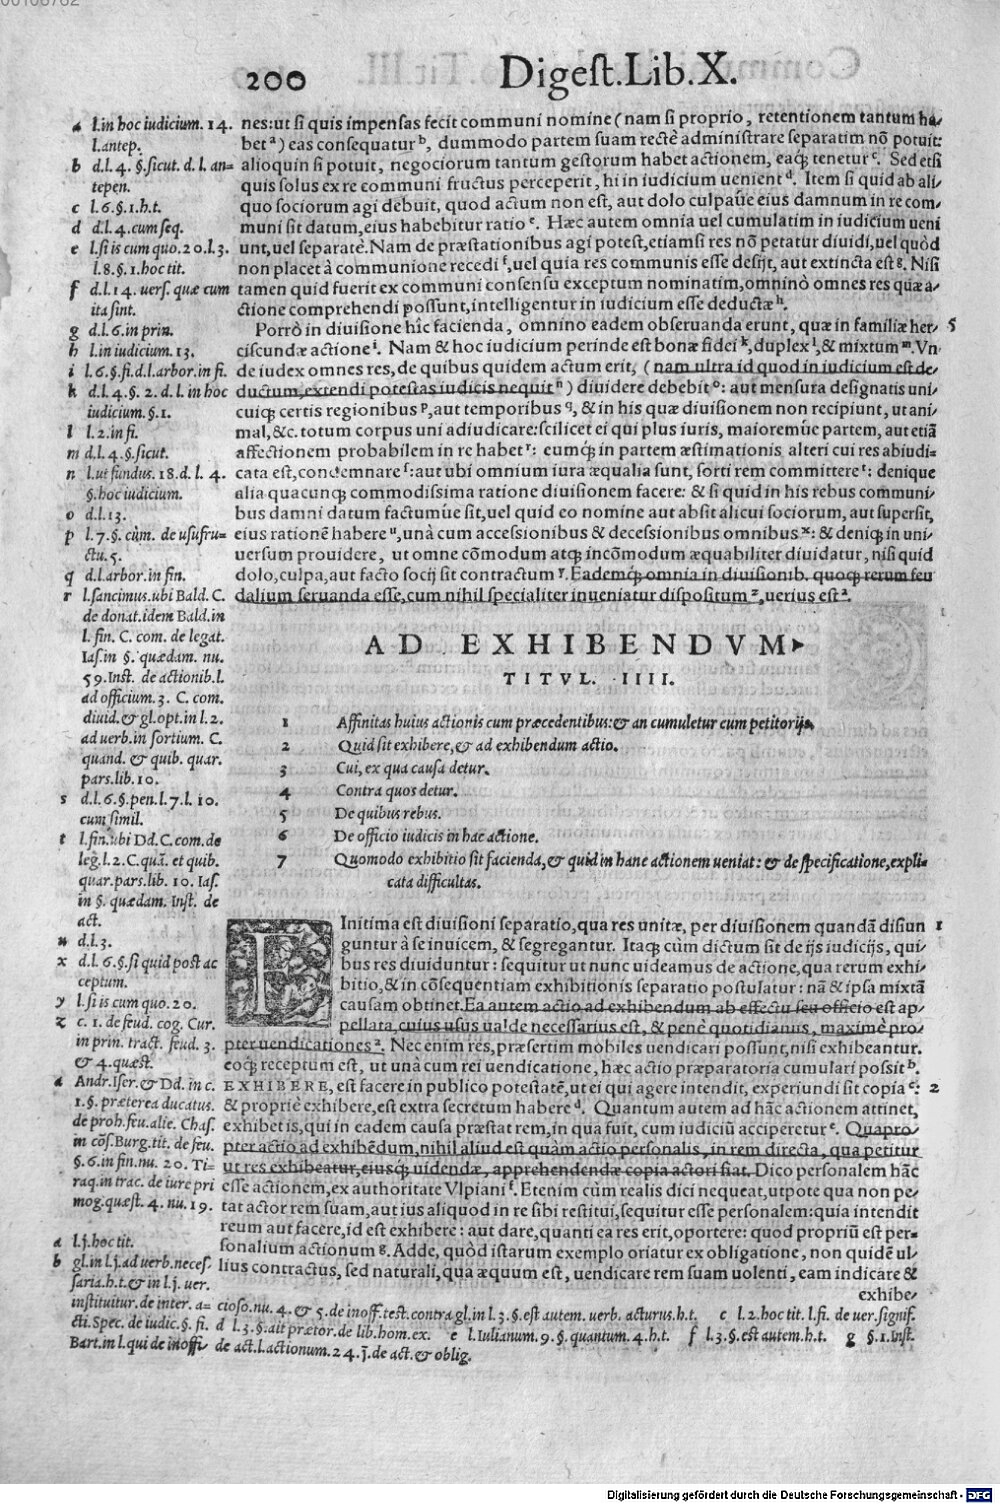 200 Digest.Lib.X.
nes:ut si quis impensas fecit communi nomine (nam si proprio, retentionem tantum ha/
bet a) eas consequatur b, dummodo partem suam rectè administrare separatim nō potuit:
alioquin si potuit, negociorum tantum gestorum habet actionem, eaq́; tenetur c. Sed etsi
quis solus ex re communi fructus perceperit, hi in iudicium uenient d. Item si quid ab ali/
quo sociorum agi debuit, quod actum non est, aut dolo culpaúe eius damnum in re com/
muni sit datum, eius habebitur ratio e. Hæc autem omnia uel cumulatim in iudicium ueni
unt, uel separatè. Nam de præstationibus agi potest, etiamsi res nō petatur diuidi, uel quòd
non placet à communione recedi f, uel quia res communis esse desijt, aut extincta est g. Nisi
tamen quid fuerit ex communi consensu exceptum nominatim, omninò omnes res quæ a/
ctione comprehendi possunt, intelligentur in iudicium esse deductæ h.
Porrò in diuisione hîc facienda, omnino eadem obseruanda erunt, quæ in familiæ her/ 5
ciscundæ actione i. Nam & hoc iudicium perinde est bonæ fidei k, duplex l, & mixtum m. Vn
de iudex omnes res, de quibus quidem actum erit, (nam ultra id quod in iudicium est de/
ductum, extendi potestas iudicis nequit n) diuidere debebit o: aut mensura designatis uni/
cuiq; certis regionibus p, aut temporibus q, & in his quæ diuisionem non recipiunt, ut ani/
mal, &c. totum corpus uni adiudicare: scilicet ei qui plus iuris, maioremúe partem, aut etiā
affectionem probabilem in re habet r: eumq́; in partem æstimationis alteri cui res abiudi/
cata est, condemnare s: aut ubi omnium iura æqualia sunt, sorti rem committere t: denique
alia quacunq; commodissima ratione diuisionem facere: & si quid in his rebus communi/
bus damni datum factumúe sit, uel quid eo nomine aut absit alicui sociorum, aut supersit,
eius rationē habere u, unà cum accessionibus & decessionibus omnibus x: & deniq; in uni/
uersum prouidere, ut omne cōmodum atq; incōmodum æquabiliter diuidatur, nisi quid
dolo, culpa, aut facto socij sit contractum y. Eademq́; omnia in diuisionib. quoq; rerum feu
dalium seruanda esse, cum nihil specialiter inueniatur dispositum z, uerius est a.
AD EXHIBENDVM
TITVL. IIII.
1 Affinitas huius actionis cum præcedentibus: & an cumuletur cum petitorijs.
2 Quid sit exhibere, & ad exhibendum actio.
3 Cui, ex qua causa detur.
4 Contra quos detur.
5 De quibus rebus.
6 De officio iudicis in hac actione.
7 Quomodo exhibitio sit facienda, & quid in hanc actionem ueniat: & de specificatione, expli/
cata difficultas.
FInitima est diuisioni separatio, qua res unitæ, per diuisionem quandā disiun 1
guntur à se inuicem, & segregantur. Itaq; cùm dictum sit de ijs iudicijs, qui/
bus res diuiduntur: sequitur ut nunc uideamus de actione, qua rerum exhi/
bitio, & in cōsequentiam exhibitionis separatio postulatur: nā & ipsa mixtā
causam obtinet. Ea autem actio ad exhibendum ab effectu seu officio est ap/
pellata, cuius usus ualde necessarius est, & penè quotidianus, maximè pro/
pter uendicationes a. Nec enim res, præsertim mobiles uendicari possunt, nisi exhibeantur.
eoq́; receptum est, ut unà cum rei uendicatione, hæc actio præparatoria cumulari possit b.
EXHIBERE, est facere in publico potestatē, ut ei qui agere intendit, experiundi sit copia c: 2
& propriè exhibere, est extra secretum habere d. Quantum autem ad hāc actionem attinet,
exhibet is, qui in eadem causa præstat rem, in qua fuit, cum iudiciū acciperetur e. Quapro/
pter actio ad exhibēdum, nihil aliud est quàm actio personalis, in rem directa, qua petitur
ut res exhibeatur, eiusq́; uidendæ, apprehendendæ copia actori fiat. Dico personalem hāc
esse actionem, ex authoritate Vlpiani f. Etenim cùm realis dici nequeat, utpote qua non pe/
tat actor rem suam, aut ius aliquod in re sibi restitui, sequitur esse personalem: quia intendit
reum aut facere, id est exhibere: aut dare, quanti ea res erit, oportere: quod propriū est per/
sonalium actionum g. Adde, quòd istarum exemplo oriatur ex obligatione, non quidē ul/
lius contractus, sed naturali, qua æquum est, uendicare rem suam uolenti, eam indicare &
exhibe/
a l.in hoc iudicium. 14.
l.antep.
b d.l. 4. §.sicut. d. l. an=
tepen.
c l.6.§.1.h.t.
d d.l.4.cum seq.
e l.si is cum quo.20.l.3.
l.8.§.1.hoc tit.
f d.l.14. uers. quæ cum
ita sint.
g d.l.6.in prin.
h l.in iudicium. 13.
i l.6.§.fi.d.l.arbor.in fi.
k d.l. 4.§. 2. d. l. in hoc
iudicium. §.1.
l l.2.in fi.
m d.l.4.§.sicut.
n l.ut fundus. 18.d. l. 4.
§.hoc iudicium.
o d.l.13.
p l.7.§. cùm. de usufru=
ctu.5.
q d.l.arbor.in fin.
r l.sancimus.ubi Bald. C.
de donat.idem Bald.in
l. fin. C. com. de legat.
Ias.in §. quædam. nu.
59.Inst. de actionib.l.
ad officium.3. C. com.
diuid.& gl.opt.in l.2.
ad uerb.in sortium. C.
quand. & quib. quar.
pars.lib.10.
s d.l.6.§.pen.l.7.l. 10.
cum simil.
t l.fin.ubi Dd.C.com.de
leg.l.2.C.quā. et quib.
quar.pars.lib. 10. Ias.
in §. quædam. Inst. de
act.
u d.l.3.
x d.l.6.§.si quid post ac
ceptum.
y l.si is cum quo.20.
z c. 1. de feud. cog. Cur.
in prin. tract. feud. 3.
& 4.quæst.
a Andr.Iser.& Dd.in c.
1.§. præterea ducatus.
de proh.feu.alie. Chas.
in cōs.Burg.tit. de feu.
§.6.in fin.nu. 20. Ti=
raq.in trac. de iure pri
mog.quæst. 4. nu.19.
a l.j.hoc tit.
b gl.in l.j.ad uerb.neces
saria.h.t.& in l.j. uer.
instituitur.de inter. a= cioso.nu. 4.& 5.de inoff.test.contra gl.in l.3.§.est autem. uerb. acturus.h.t. c l.2.hoc tit. l.fi. de uer.signif.
cti.Spec.de iudic.§. fi. d l.3.§.ait prætor.de lib.hom.ex. e l.Iulianum.9.§. quantum.4.h.t. f l.3.§.est autem.h.t. g §.1.Inst.
Bart.in l.qui de inoffi de act.l.actionum.24.j.de act.& oblig.
Digitalisierung gefördert durch die Deutsche Forschungsgemeinschaft - DFG